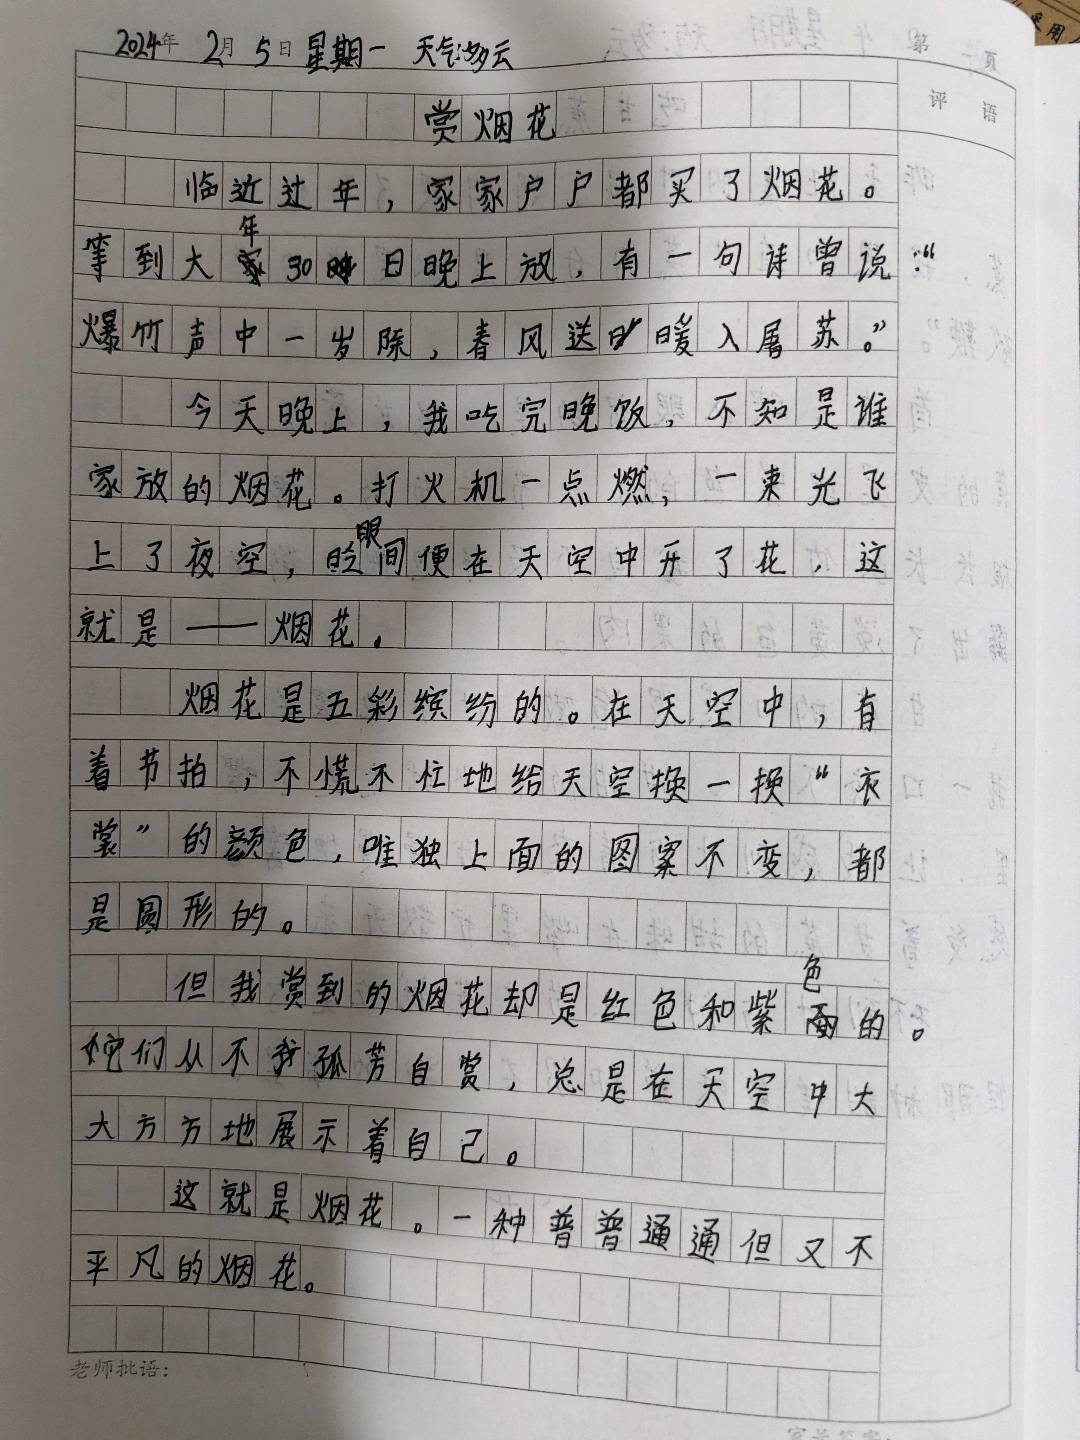 2024年 2月 5日 星期一 天气:多云
第 页
评 语
赏烟花
临近过年，家家户户都买了烟花。
等到大年30日晚上放，有一句诗曾说：“
爆竹声中一岁除，春风送暖入屠苏。”
今天晚上，我吃完晚饭，不知是谁
家放的烟花。打火机一点燃，一束光飞
上了夜空，眨眼间便在天空中开了花，这
就是——烟花。
烟花是五彩缤纷的。在天空中，有
着节拍，不慌不忙地给天空换一换“衣
裳”的颜色，唯独上面的图案不变，都
是圆形的。
但我赏到的烟花却是红色和紫色的。
它们从不孤芳自赏，总是在天空中大
大方方地展示着自己。
这就是烟花。一种普普通通但又不
平凡的烟花。
老师批语：